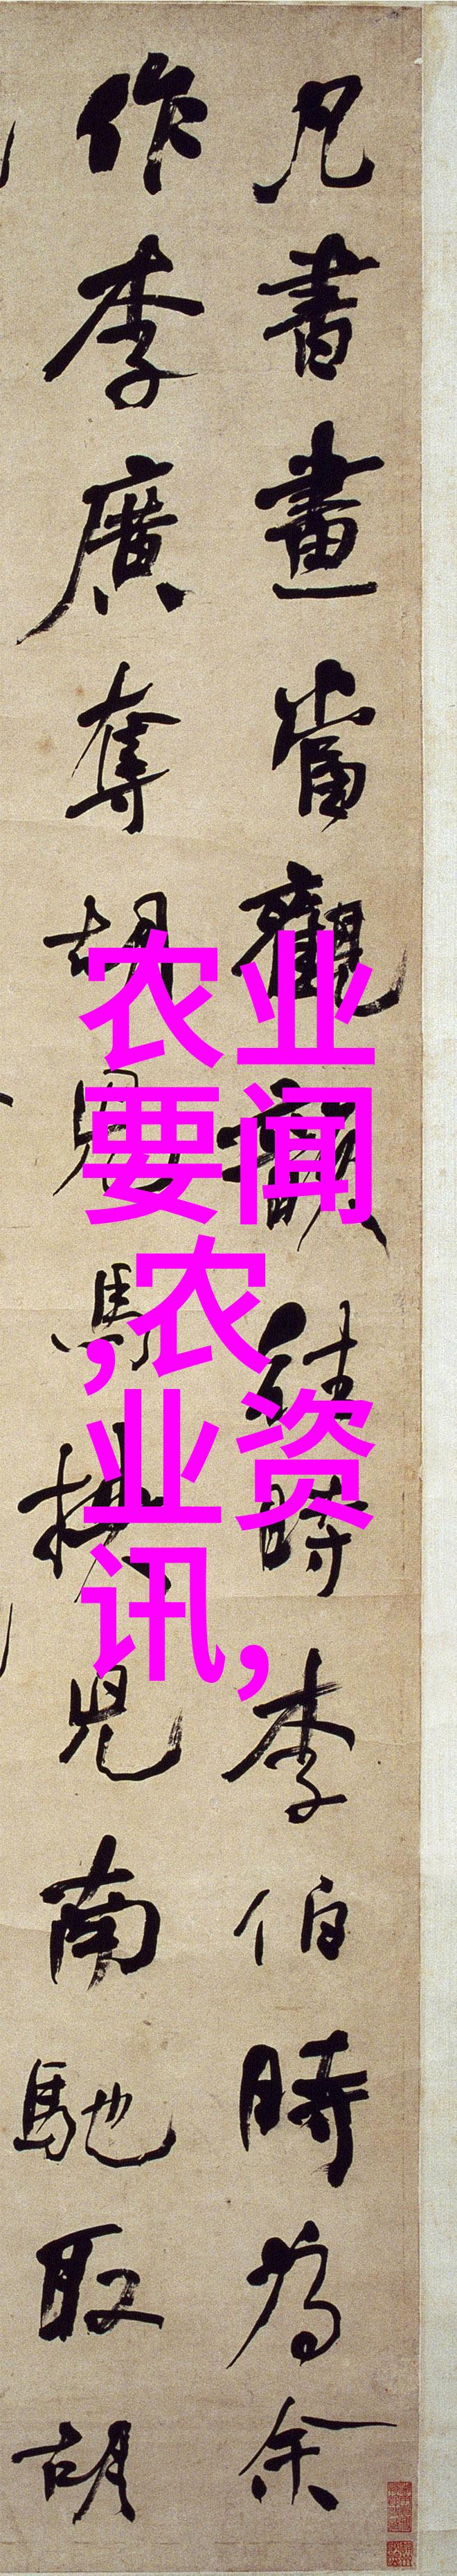 凡書畫當觀韻往時李伯時為余
作李廣奪胡兒馬挾兒南馳取胡
农业
要闻
,农
业资
讯,